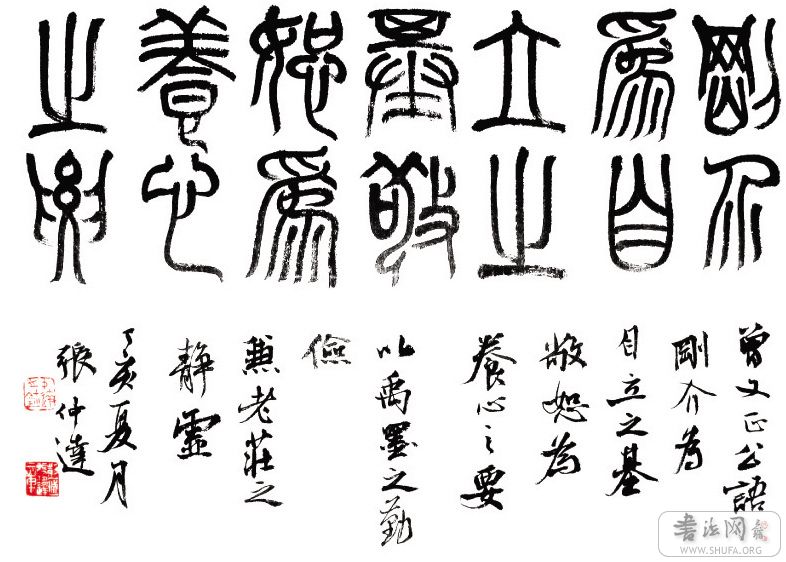 剛介
爲自
立之
基敬
恕爲
養心
之要
曾文正公語
剛介為
自立之基
敬恕為
養心之要
以禹墨之勤
儉
兼老莊之
靜虛
丁亥夏月
張仲達
書法网
WWW.SHUFA.ORG